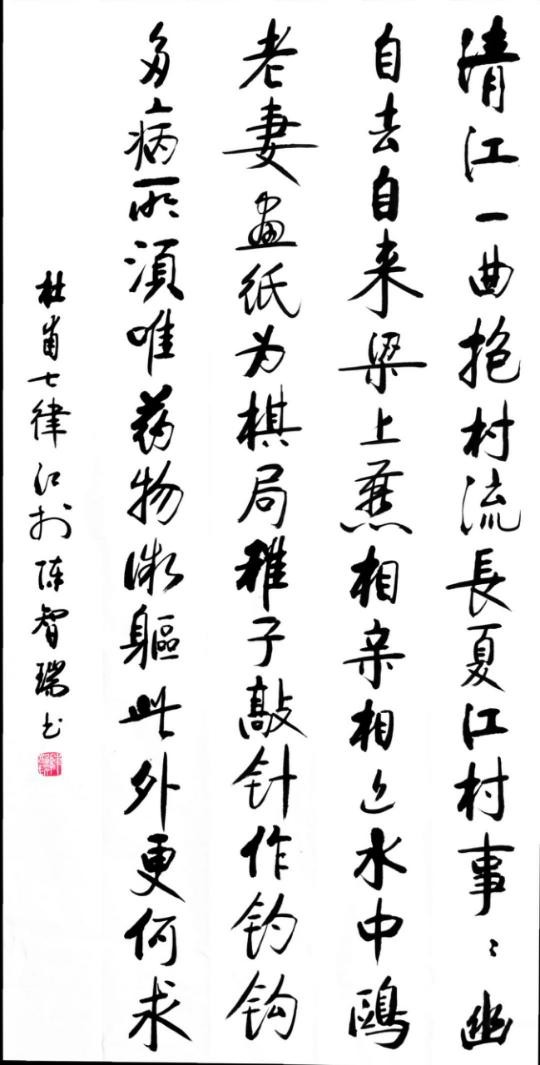 清江一曲抱村流長夏江村事〻幽
自去自来梁上燕相亲相近水中鷗
老妻畫纸为棋局稚子敲针作钓钩
多病所須唯药物微軀此外更何求
杜甫七律江村陈智瑞书